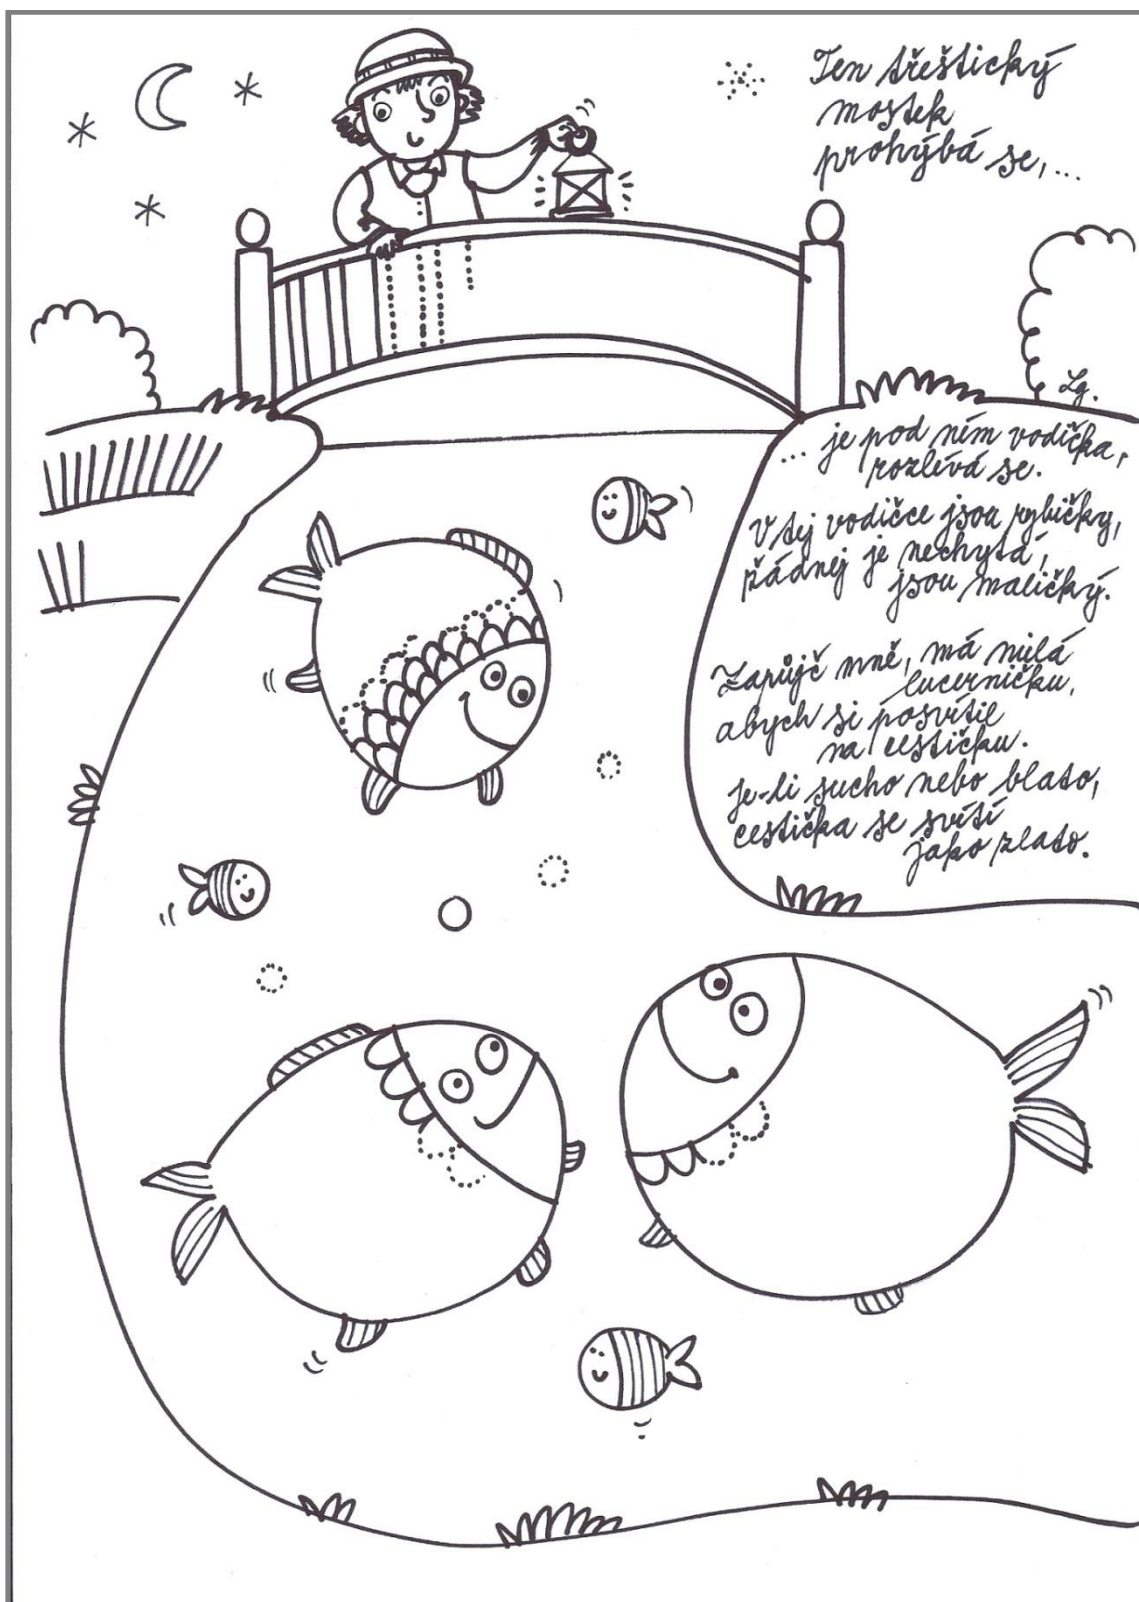 Ten třeštický
mostek
prohýbá se,...
Lg.
... je pod ním vodička,
rozlévá se.
V tej vodičce jsou rybičky,
žádnej je nechytá,
jsou maličký.
Zapůjč mně, má milá
lucerničku,
abych si posvítil
na cestičku.
Je-li sucho nebo blato,
cestička se svítí
jako zlato.